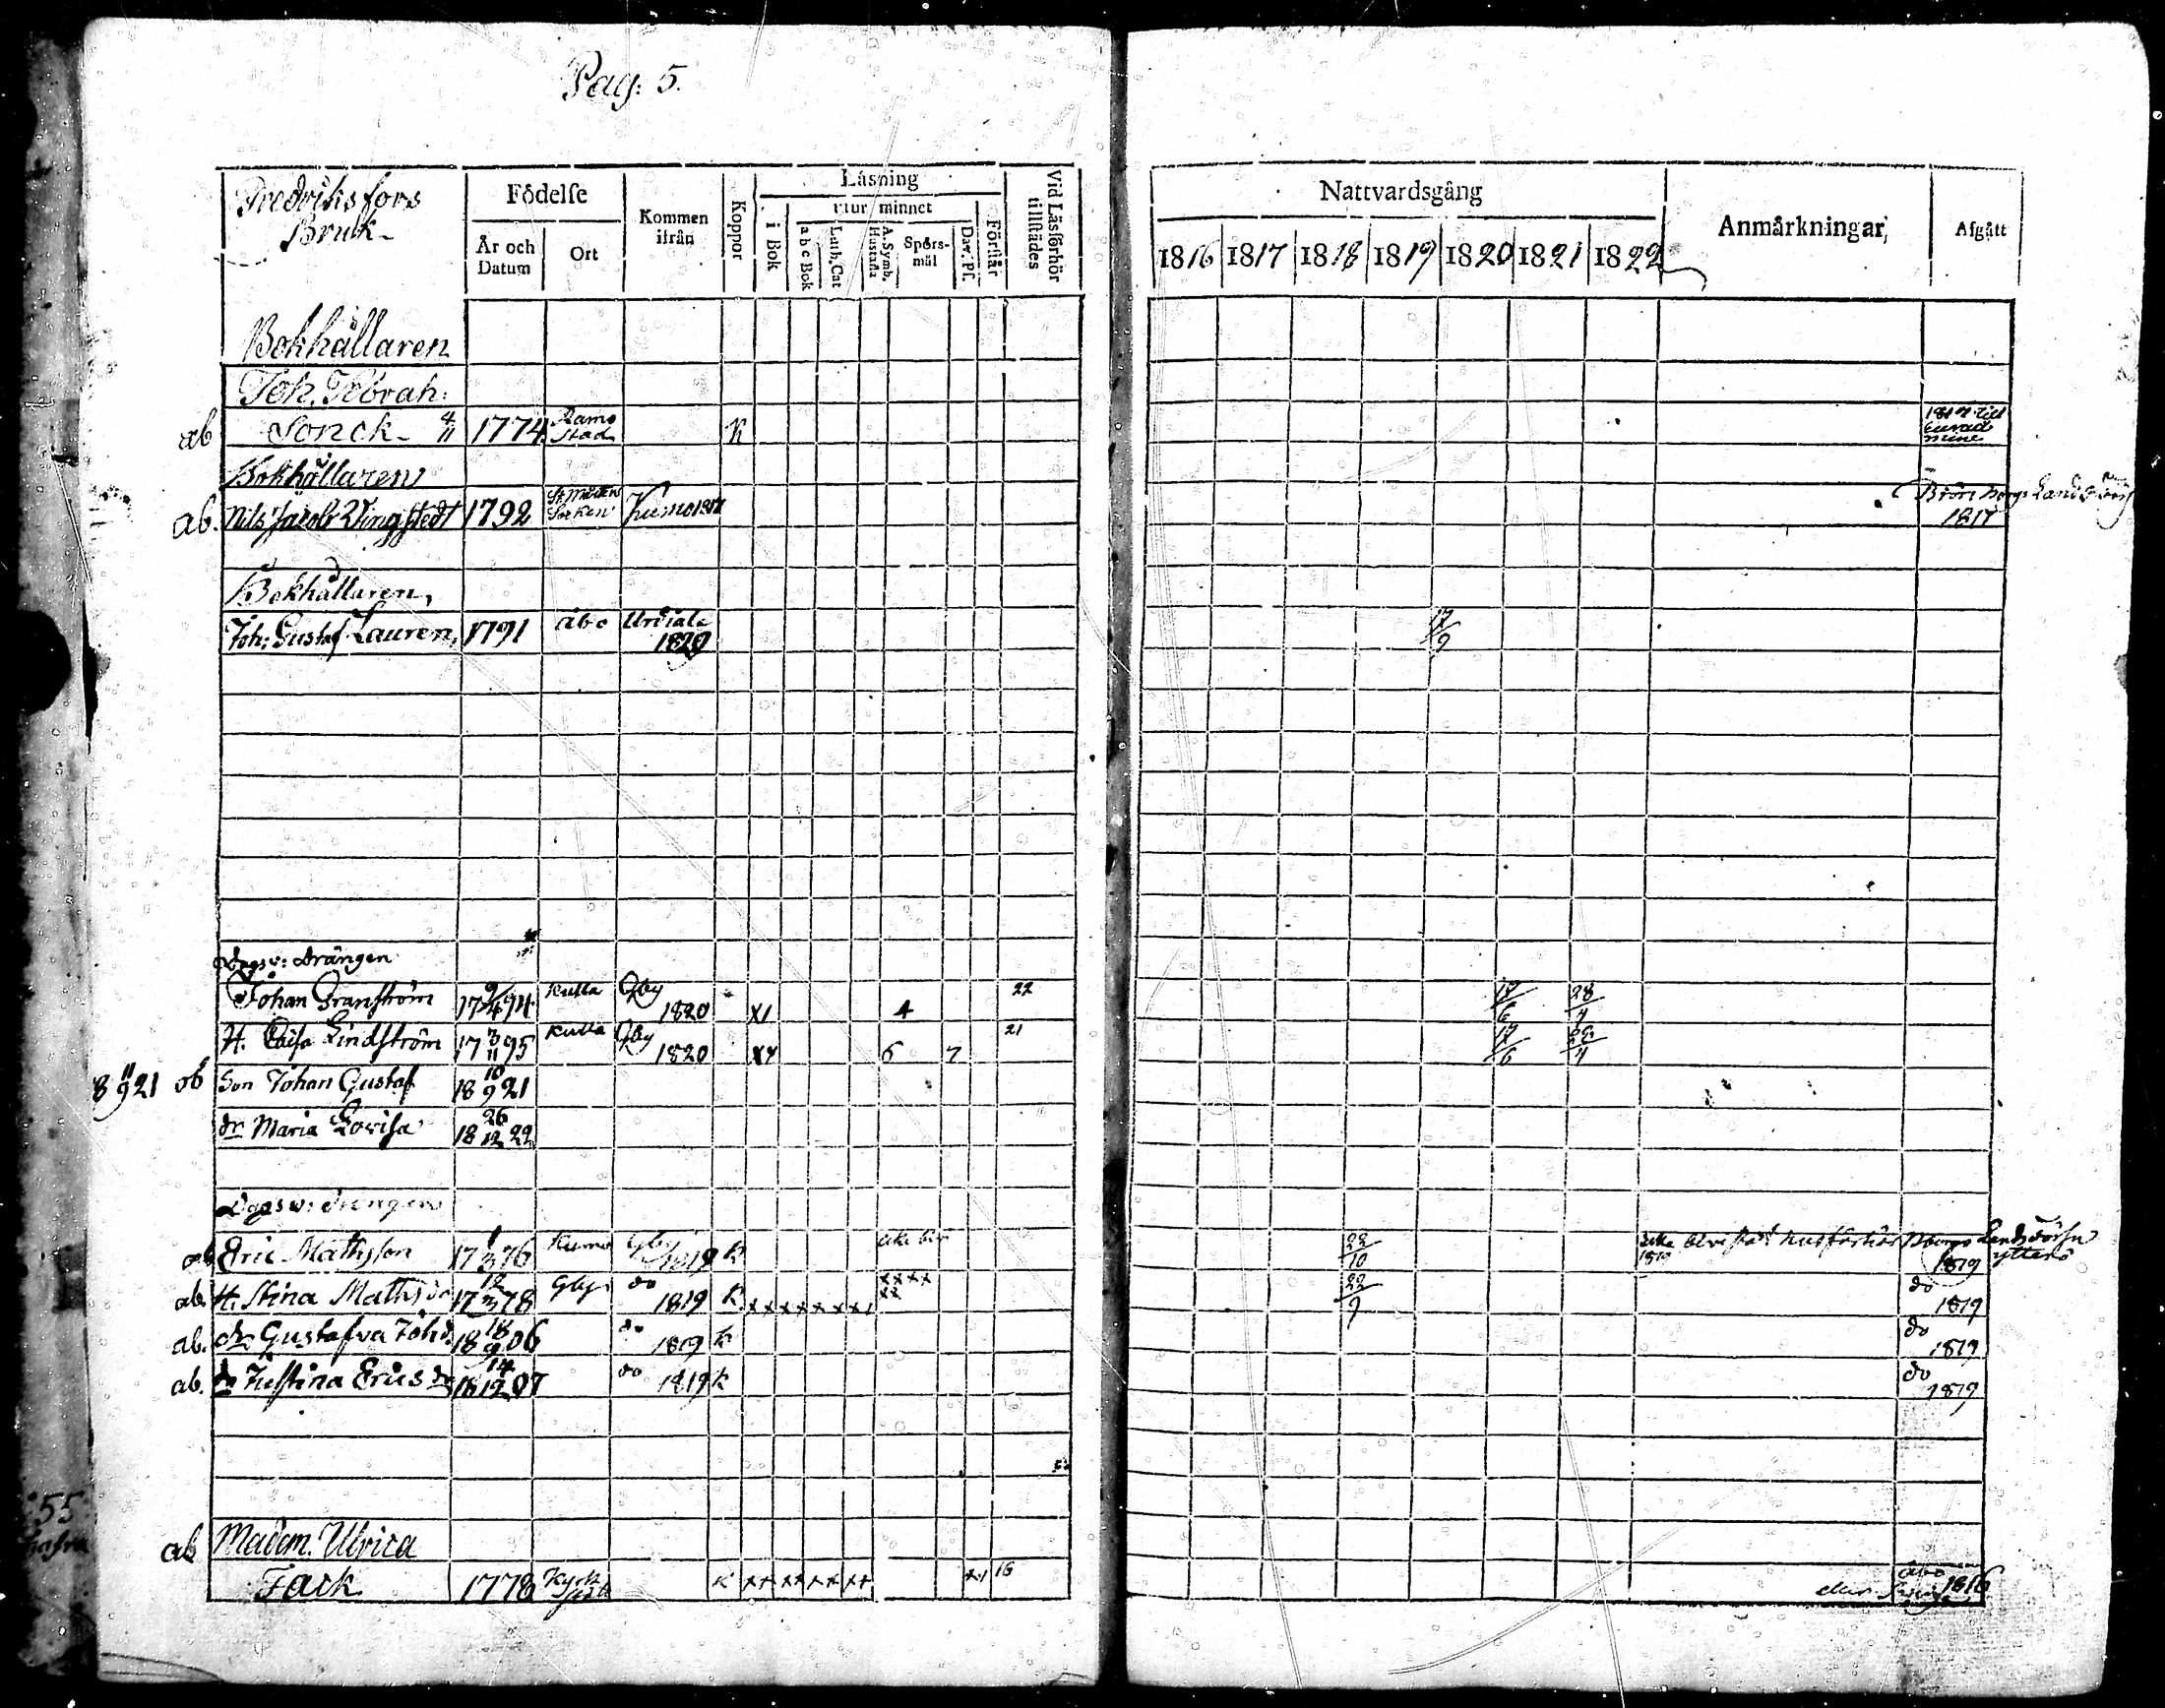 Pag: 5.
Fredriksfors
Bruk
Födelse
År och Datum
Ort
Kommen ifrån
Koppor
Läsning
i Bok
utur minnet
a b c Bok
Luth. Cat
A. Symb. Hustafla
Spörs-mål
Dav. Ps.
Förstår
Vid Läsförhör tillstädes
Nattvardsgång
1816 1817 1818 1819 1820 1821 1822
Anmärkningar
Afgått
Bokhållaren
Joh. Abrah:
ab Sonck 4/11 1774 Stad K 1817 till
Bokhållaren
ab. Nils Jacob Wingstedt 1792 St. Mårtens Socken Kumo 1817 1817
Bokhållaren,
Joh: Gustaf Lauren, 1791 Åbo Urdiala 1820 17/9
Dagsv: Drängen
Johan Granström 17 9/4 94 Kulla Gby 1820 XI 4 22 17/6 28/4
H. Caisa Lindström 17 3/11 95 Kulla Gby 1820 6 7 21 17/6 28/4
8 11/9 21 ob Son Johan Gustaf 18 10/9 21
dr Maria Lovisa 18 26/12 22
Dagsv: drengen
ab Eric Mathsson 17 1/3 76 Kumo Gby 1819 K 22/10 husförhör 1819
ab. H. Stina Mathsdr 17 12/3 78 Gby do 1819 K xxxxxxx xxxx xx 22/9 do 1819
ab. dr Gustafva Johd. 18 18/9 06 do 1819 K do 1819
ab. dr Justina Ericsdr 18 14/12 07 do 1819 K do 1819
ab Madem. Ulrica
Jack 1778 K xx xx xx xx 16 Åbo 1816
55